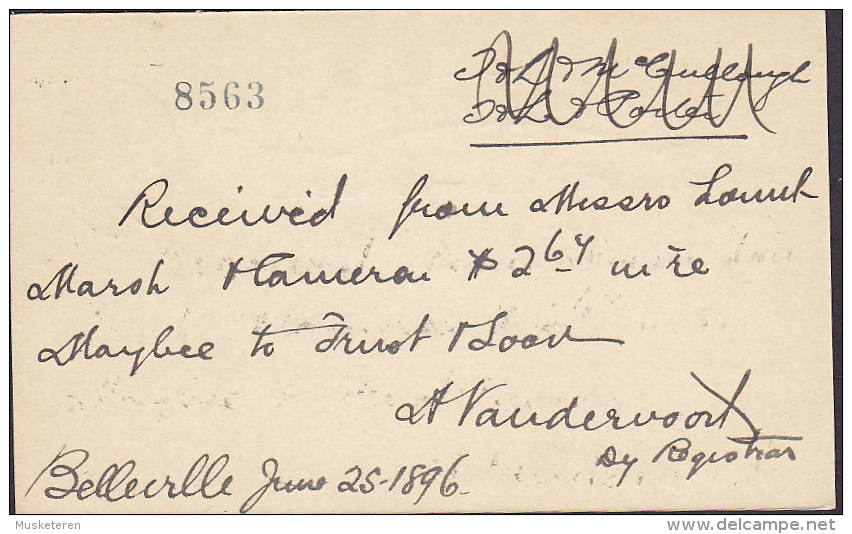 8563
T & L v McCullough
T & L v Porter
Received from Messrs Lount
Marsh & Cameron $2 64 in re
Maybee to Trust & Loan
A Vandervoort
Dy Registrar
Belleville June 25-1896.
Musketeren
delcampe.net